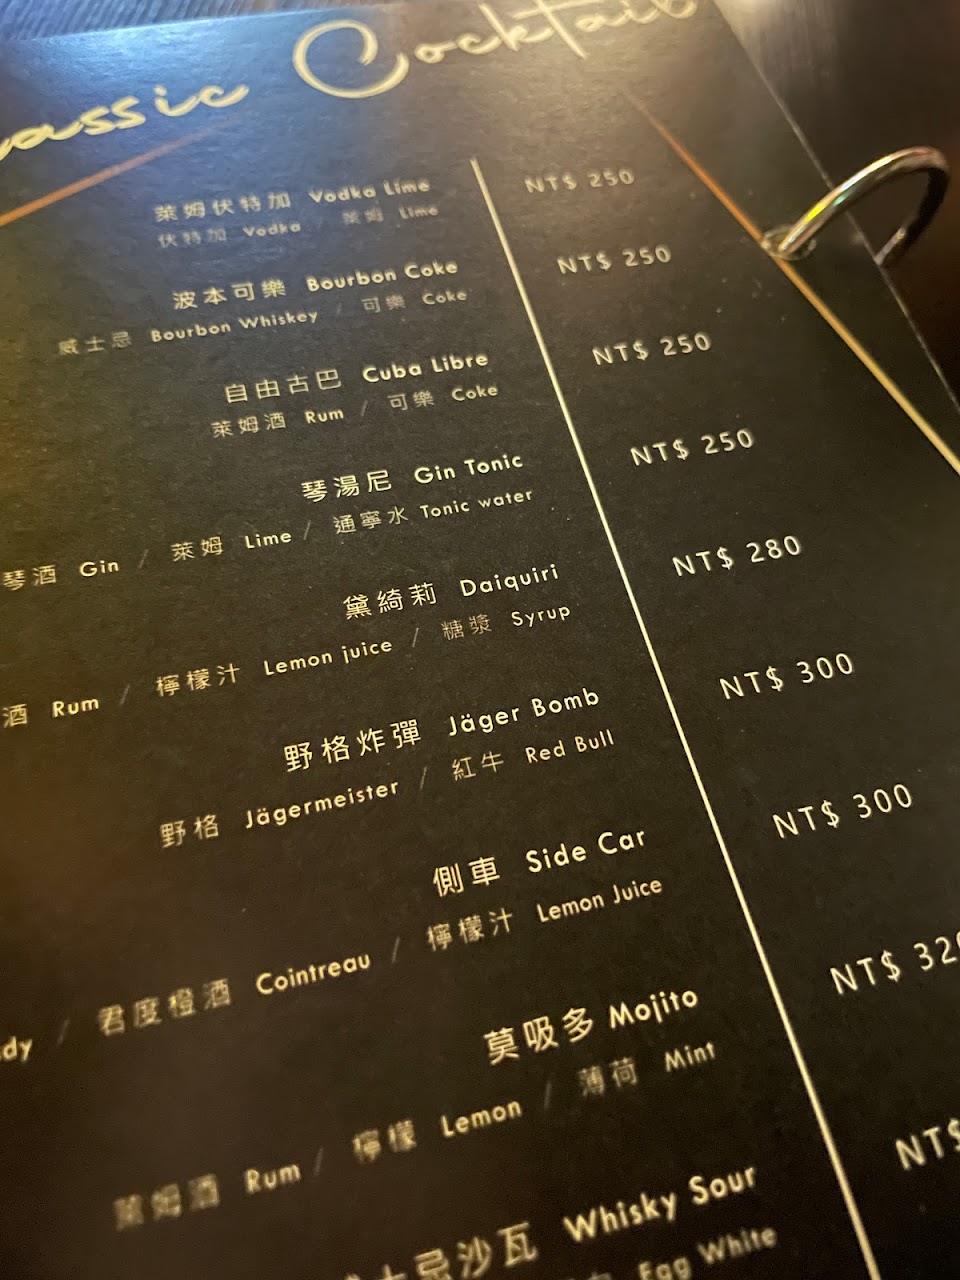 Classic Cocktail
萊姆伏特加 Vodka Lime NT$ 250
伏特加 Vodka / 萊姆 Lime
波本可樂 Bourbon Coke NT$ 250
威士忌 Bourbon Whiskey / 可樂 Coke
自由古巴 Cuba Libre NT$ 250
萊姆酒 Rum / 可樂 Coke
琴湯尼 Gin Tonic NT$ 250
琴酒 Gin / 萊姆 Lime / 通寧水 Tonic water
黛綺莉 Daiquiri NT$ 280
酒 Rum / 檸檬汁 Lemon juice / 糖漿 Syrup
野格炸彈 Jäger Bomb NT$ 300
野格 Jägermeister / 紅牛 Red Bull
側車 Side Car NT$ 300
dy / 君度橙酒 Cointreau / 檸檬汁 Lemon Juice
莫吸多 Mojito NT$ 320
萊姆酒 Rum / 檸檬 Lemon / 薄荷 Mint
士忌沙瓦 Whisky Sour NT$
Egg White